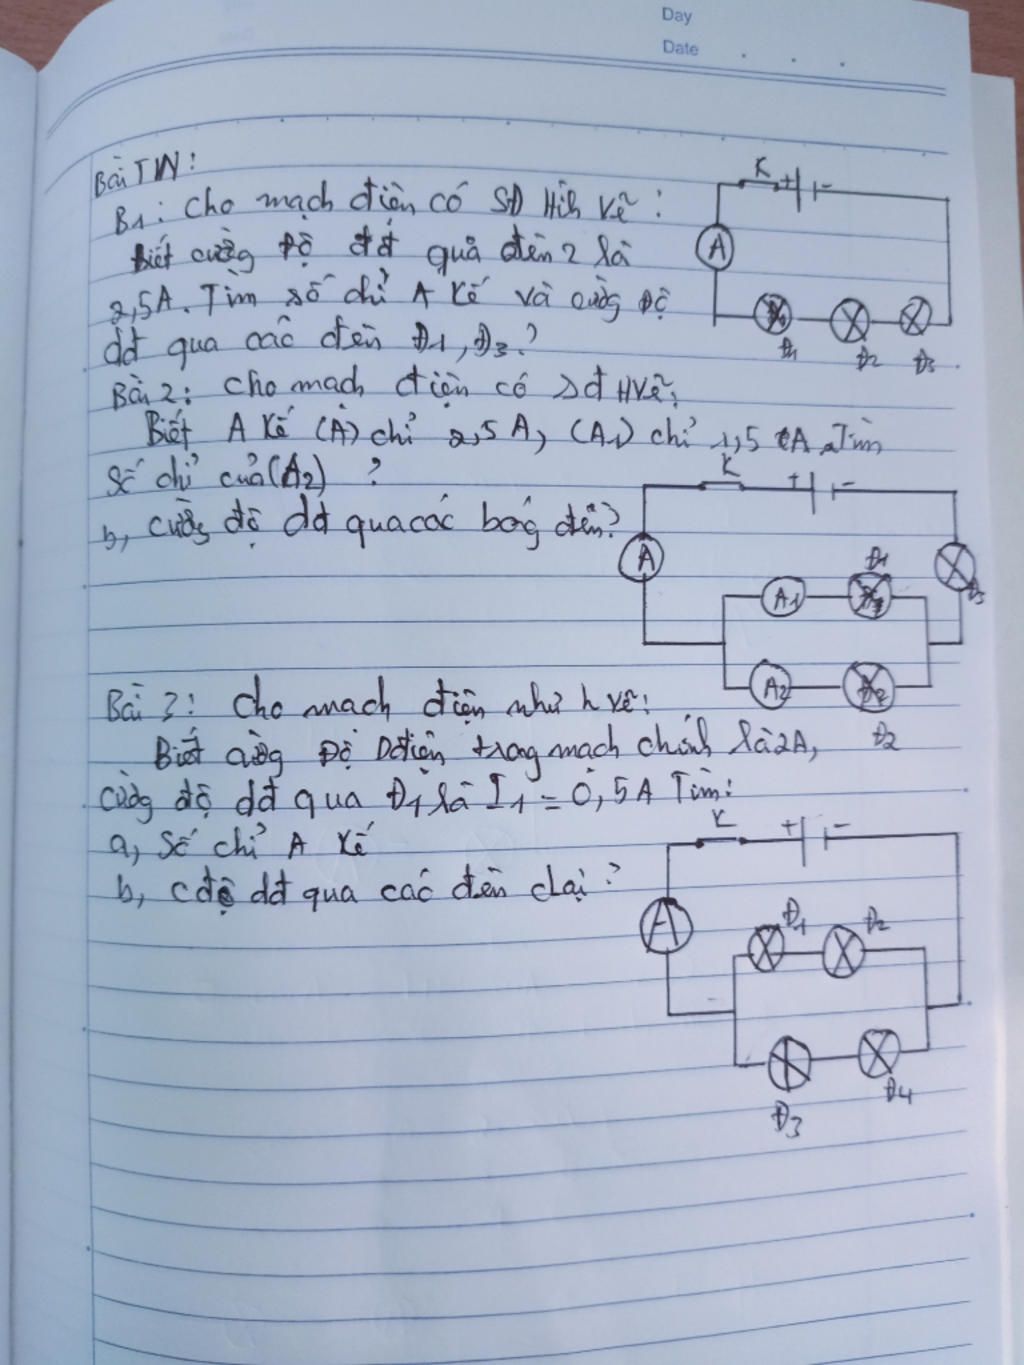 Day
Date
Bài TW:
B1: Cho mạch điện có SĐ Hìh vẽ:
Biết cường Độ dđ quả đèn 2 là
2,5A. Tìm số chỉ A kế và cường Độ
dđ qua các đèn Đ1, Đ3?
Bài 2: Cho mạch điện có sđ HVẽ:
Biết A kế (A) chỉ 2,5A, (A1) chỉ 1,5A. Tìm
Số chỉ của (A2) ?
b, cường độ dđ qua các bóg đèn?
Bài 3: Cho mạch điện như h vẽ:
Biết cường Độ Dđiện trong mạch chính là 2A,
cường độ dđ qua Đ1 là I1 = 0,5A Tìm:
a, Số chỉ A kế
b, cđộ dđ qua các đèn clại?
K + -
A
Đ1 Đ2 Đ3
K + -
A
A1 Đ1
Đ3
A2 Đ2
K + -
A
Đ1 Đ2
Đ3 Đ4